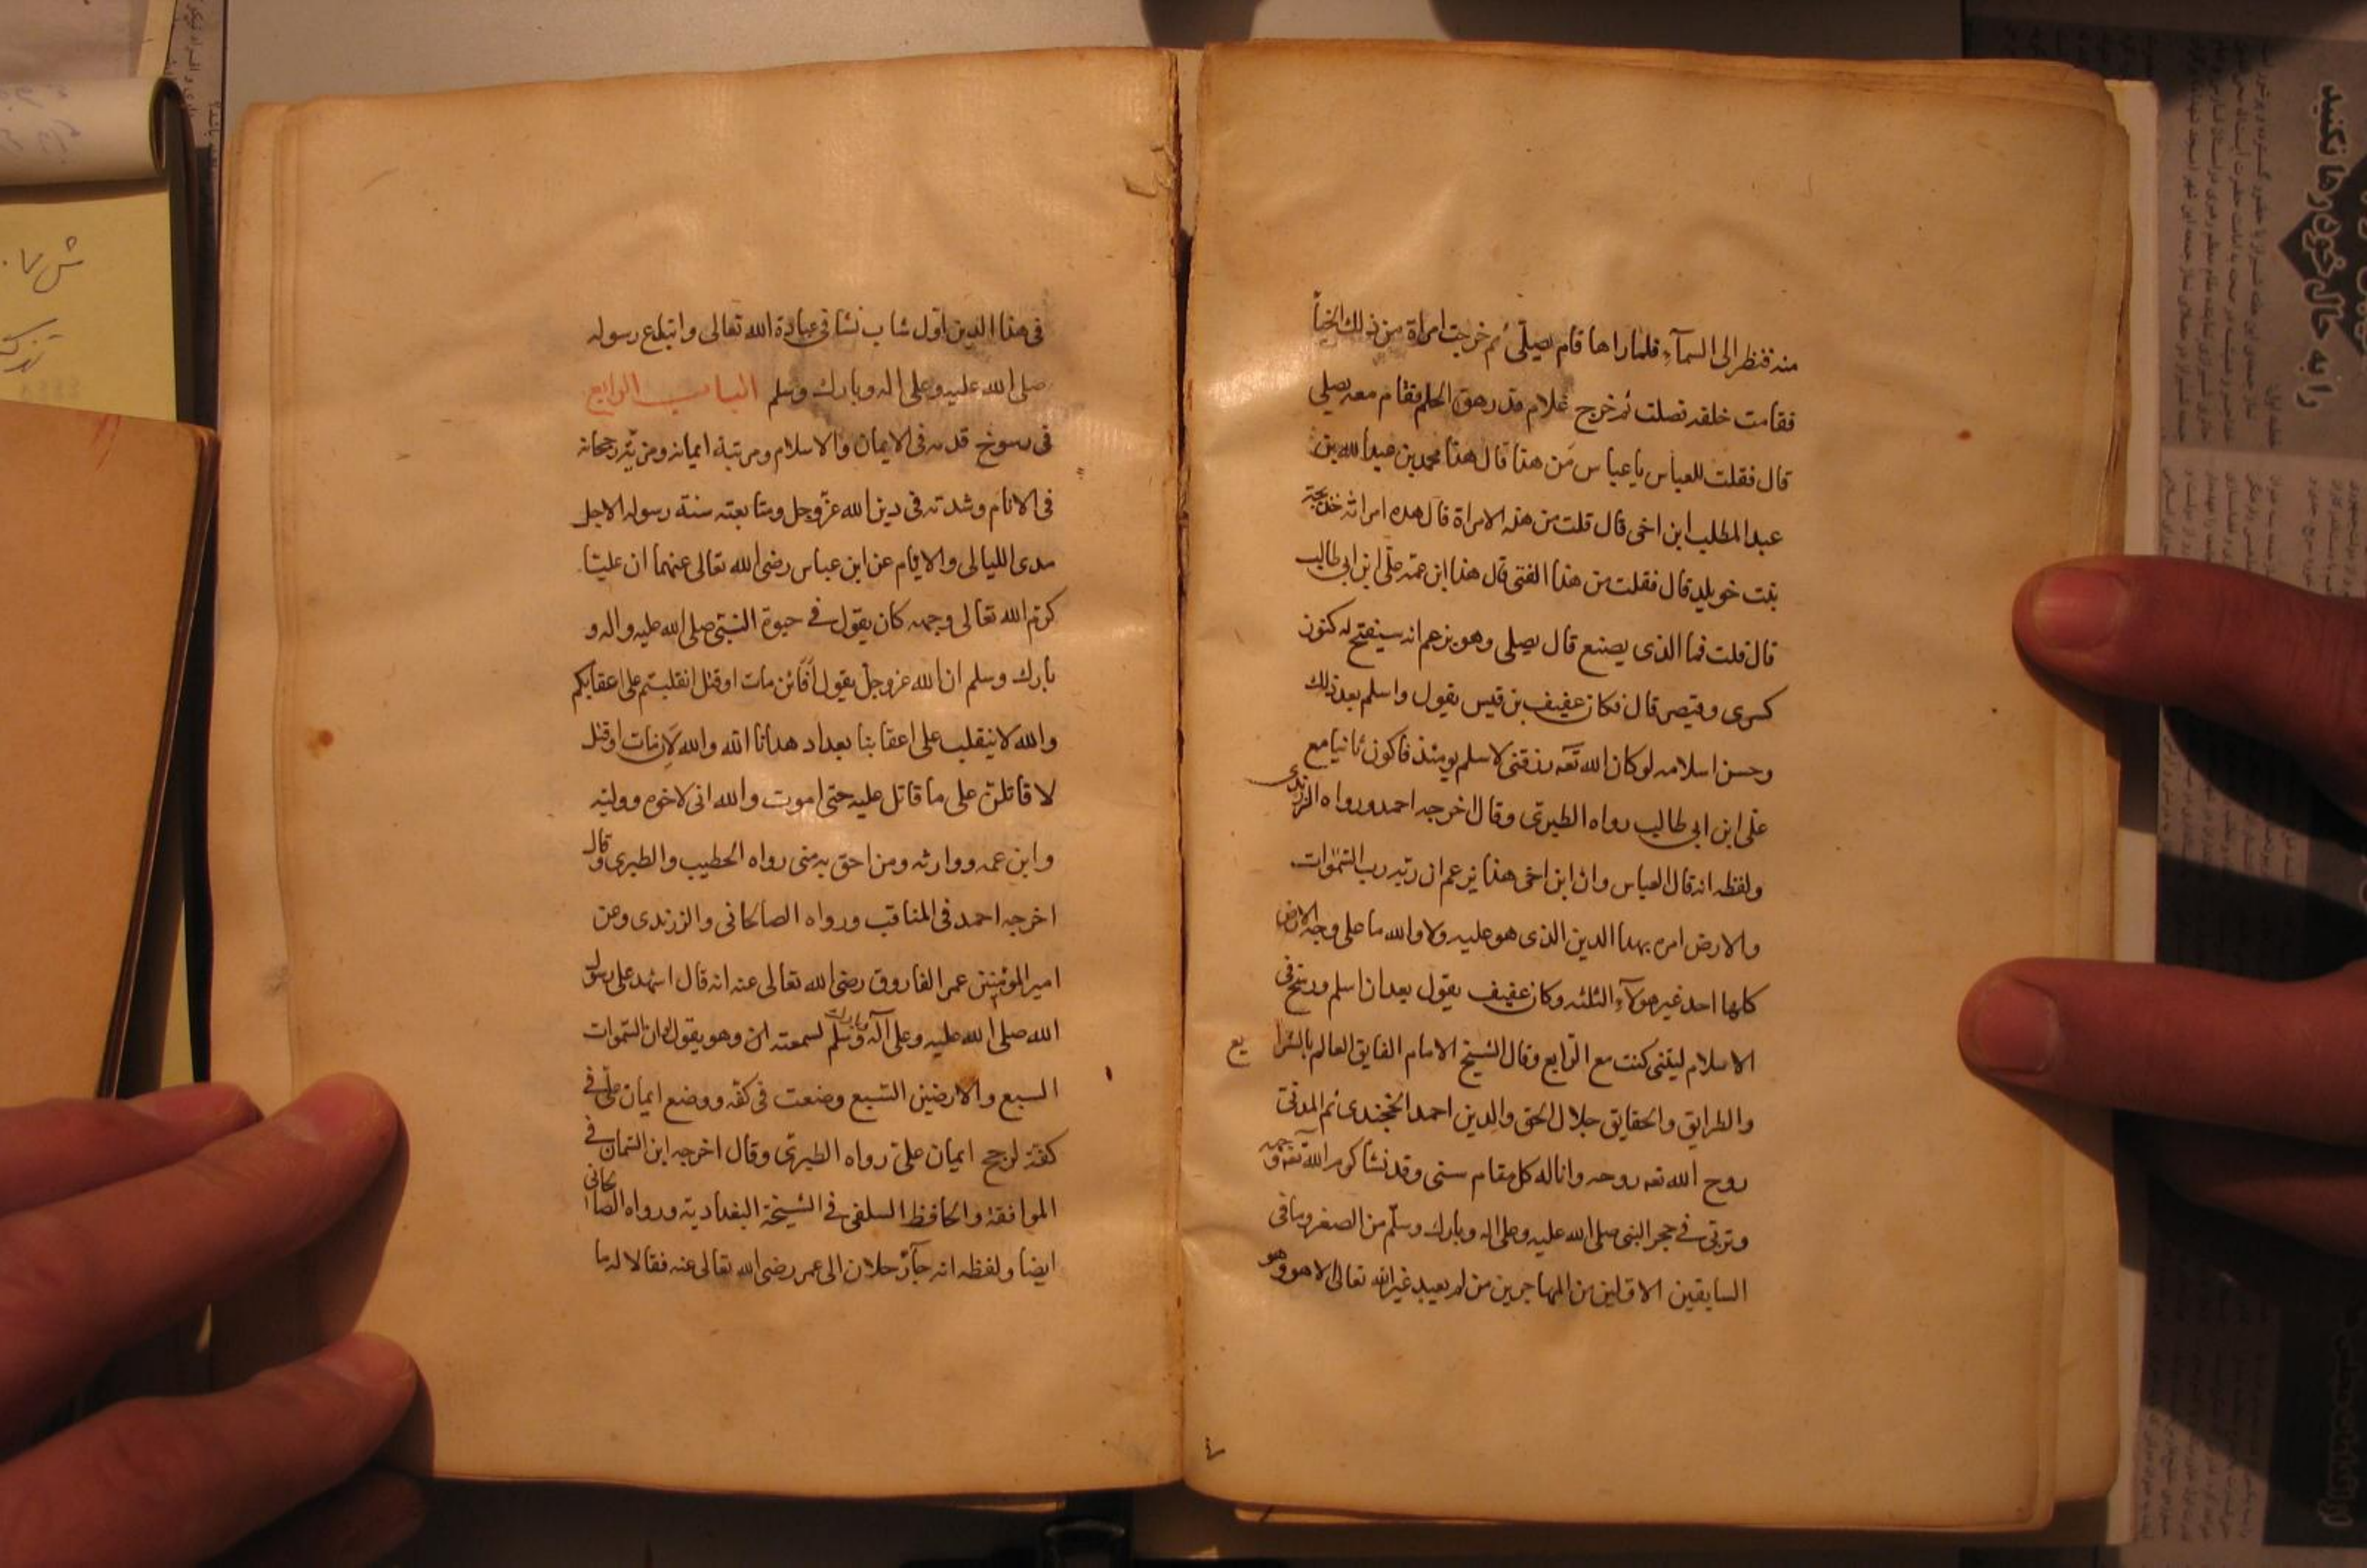 منه فنظر الى السمآء فلما راها قام يصلى ثم خرجت امراة من ذلك الخبأ
فقامت خلفه تصلت ثم خرج غلام قد رهق الحلم فقام معه يصلى
قال فقلت للعباس يا عباس من هذا قال هذا محمد بن عبد الله بن
عبد المطلب ابن اخى قال قلت من هذه الامراة قال هذه امراته خديجة
بنت خويلد قال فقلت من هذا الفتى قال هذا ابن عمه على ابن ابى طالب
قال قلت فما الذى يصنع قال يصلى وهو يزعم انه سيفتح له كنوز
كسرى وقيصر قال فكان عفيف بن قيس يقول واسلم بعد ذلك
وحسن اسلامه لو كان الله تعه رزقنى لاسلم يومئذ فاكون ثانيا مع
على ابن ابى طالب رواه الطبرى وقال اخرجه احمد ورواه الزرندى
ولفظه انه قال العباس وان ابن اخى هذا يزعم ان ربه رب السموات
والارض امره بهذا الدين الذى هو عليه ولا والله ما على وجه الارض
كلها احد غير هولآء الثلثه وكان عفيف يقول بعد ان اسلم ورسخ فى
الاسلام ليتنى كنت مع الرابع وقال الشيخ الامام الفايق العالم بالشرايع
والطرايق والحقايق جلال الحق والدين احمد الخجندى ثم المدنى
روح الله تعه روحه واناله كل مقام سنى وقد نشا كرم الله تعه وجهه
وتربى فى حجر النبى صلى الله عليه وعلى اله وبارك وسلم من الصغر وما فى
السابقين الاولين من المهاجرين من لم يعبد غير الله تعالى الا هو وهو
فى هذا الدين اول شاب نشا فى عبادة الله تعالى واتباع رسوله
صلى الله عليه وعلى اله وبارك وسلم الباب الرابع
فى رسوخ قدمه فى الايمان والاسلام ومرتبة ايمانه ومزية رجحانه
فى الانام وشدته فى دين الله عز وجل ومتابعته سنة رسوله الاجل
مدى الليالى والايام عن ابن عباس رضى الله تعالى عنهما ان عليا
كرم الله تعالى وجهه كان يقول فى حيوة النبى صلى الله عليه واله و
بارك وسلم ان الله عز وجل يقول أفائن مات او قتل انقلبتم على اعقابكم
والله لا ينقلب على اعقابنا بعد اذ هدانا الله والله لان مات او قتل
لاقاتلن على ما قاتل عليه حتى اموت والله انى لاخوه ووليه
وابن عمه ووارثه ومن احق به منى رواه الخطيب والطبرى وقال
اخرجه احمد فى المناقب ورواه الصالحانى والزرندى وعن
امير المؤمنين عمر الفاروق رضى الله تعالى عنه انه قال اشهد على رسول
الله صلى الله عليه وعلى آله وبارك وسلم لسمعته وهو يقول ان السموات
السبع والارضين السبع وضعت فى كفه ووضع ايمان على فى
كفة لرجح ايمان على رواه الطبرى وقال اخرجه ابن السمان فى
الموافقة والحافظ السلفى فى الشيخة البغدادية ورواه الصالحانى
ايضا ولفظه انه جآء رجلان الى عمر رضى الله تعالى عنه فقالا له ما
را به حال خود رها نكنيد